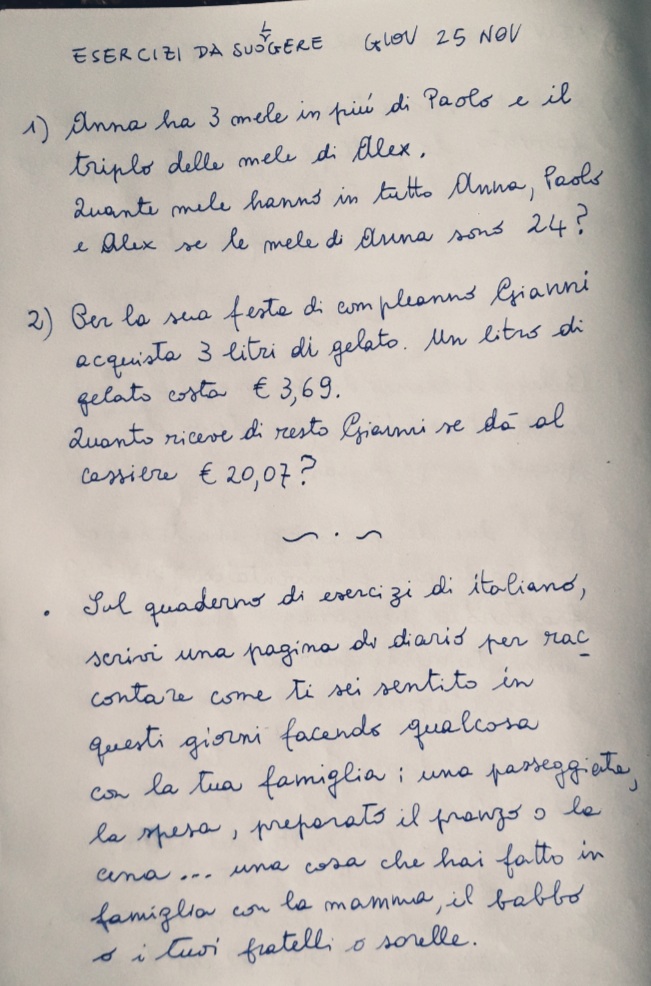 ESERCIZI DA SVOLGERE GIOV 25 NOV
1) Anna ha 3 mele in piú di Paolo e il
triplo delle mele di Alex.
Quante mele hanno in tutto Anna, Paolo
e Alex se le mele di Anna sono 24?
2) Per la sua festa di compleanno Gianni
acquista 3 litri di gelato. Un litro di
gelato costa € 3,69.
Quanto riceve di resto Gianni se dà al
cassiere € 20,07?
~ . ~
• Sul quaderno di esercizi di italiano,
scrivi una pagina di diario per rac
contare come ti sei sentito in
questi giorni facendo qualcosa
con la tua famiglia: una passeggiata,
la spesa, preparato il pranzo o la
cena... una cosa che hai fatto in
famiglia con la mamma, il babbo
o i tuoi fratelli o sorelle.